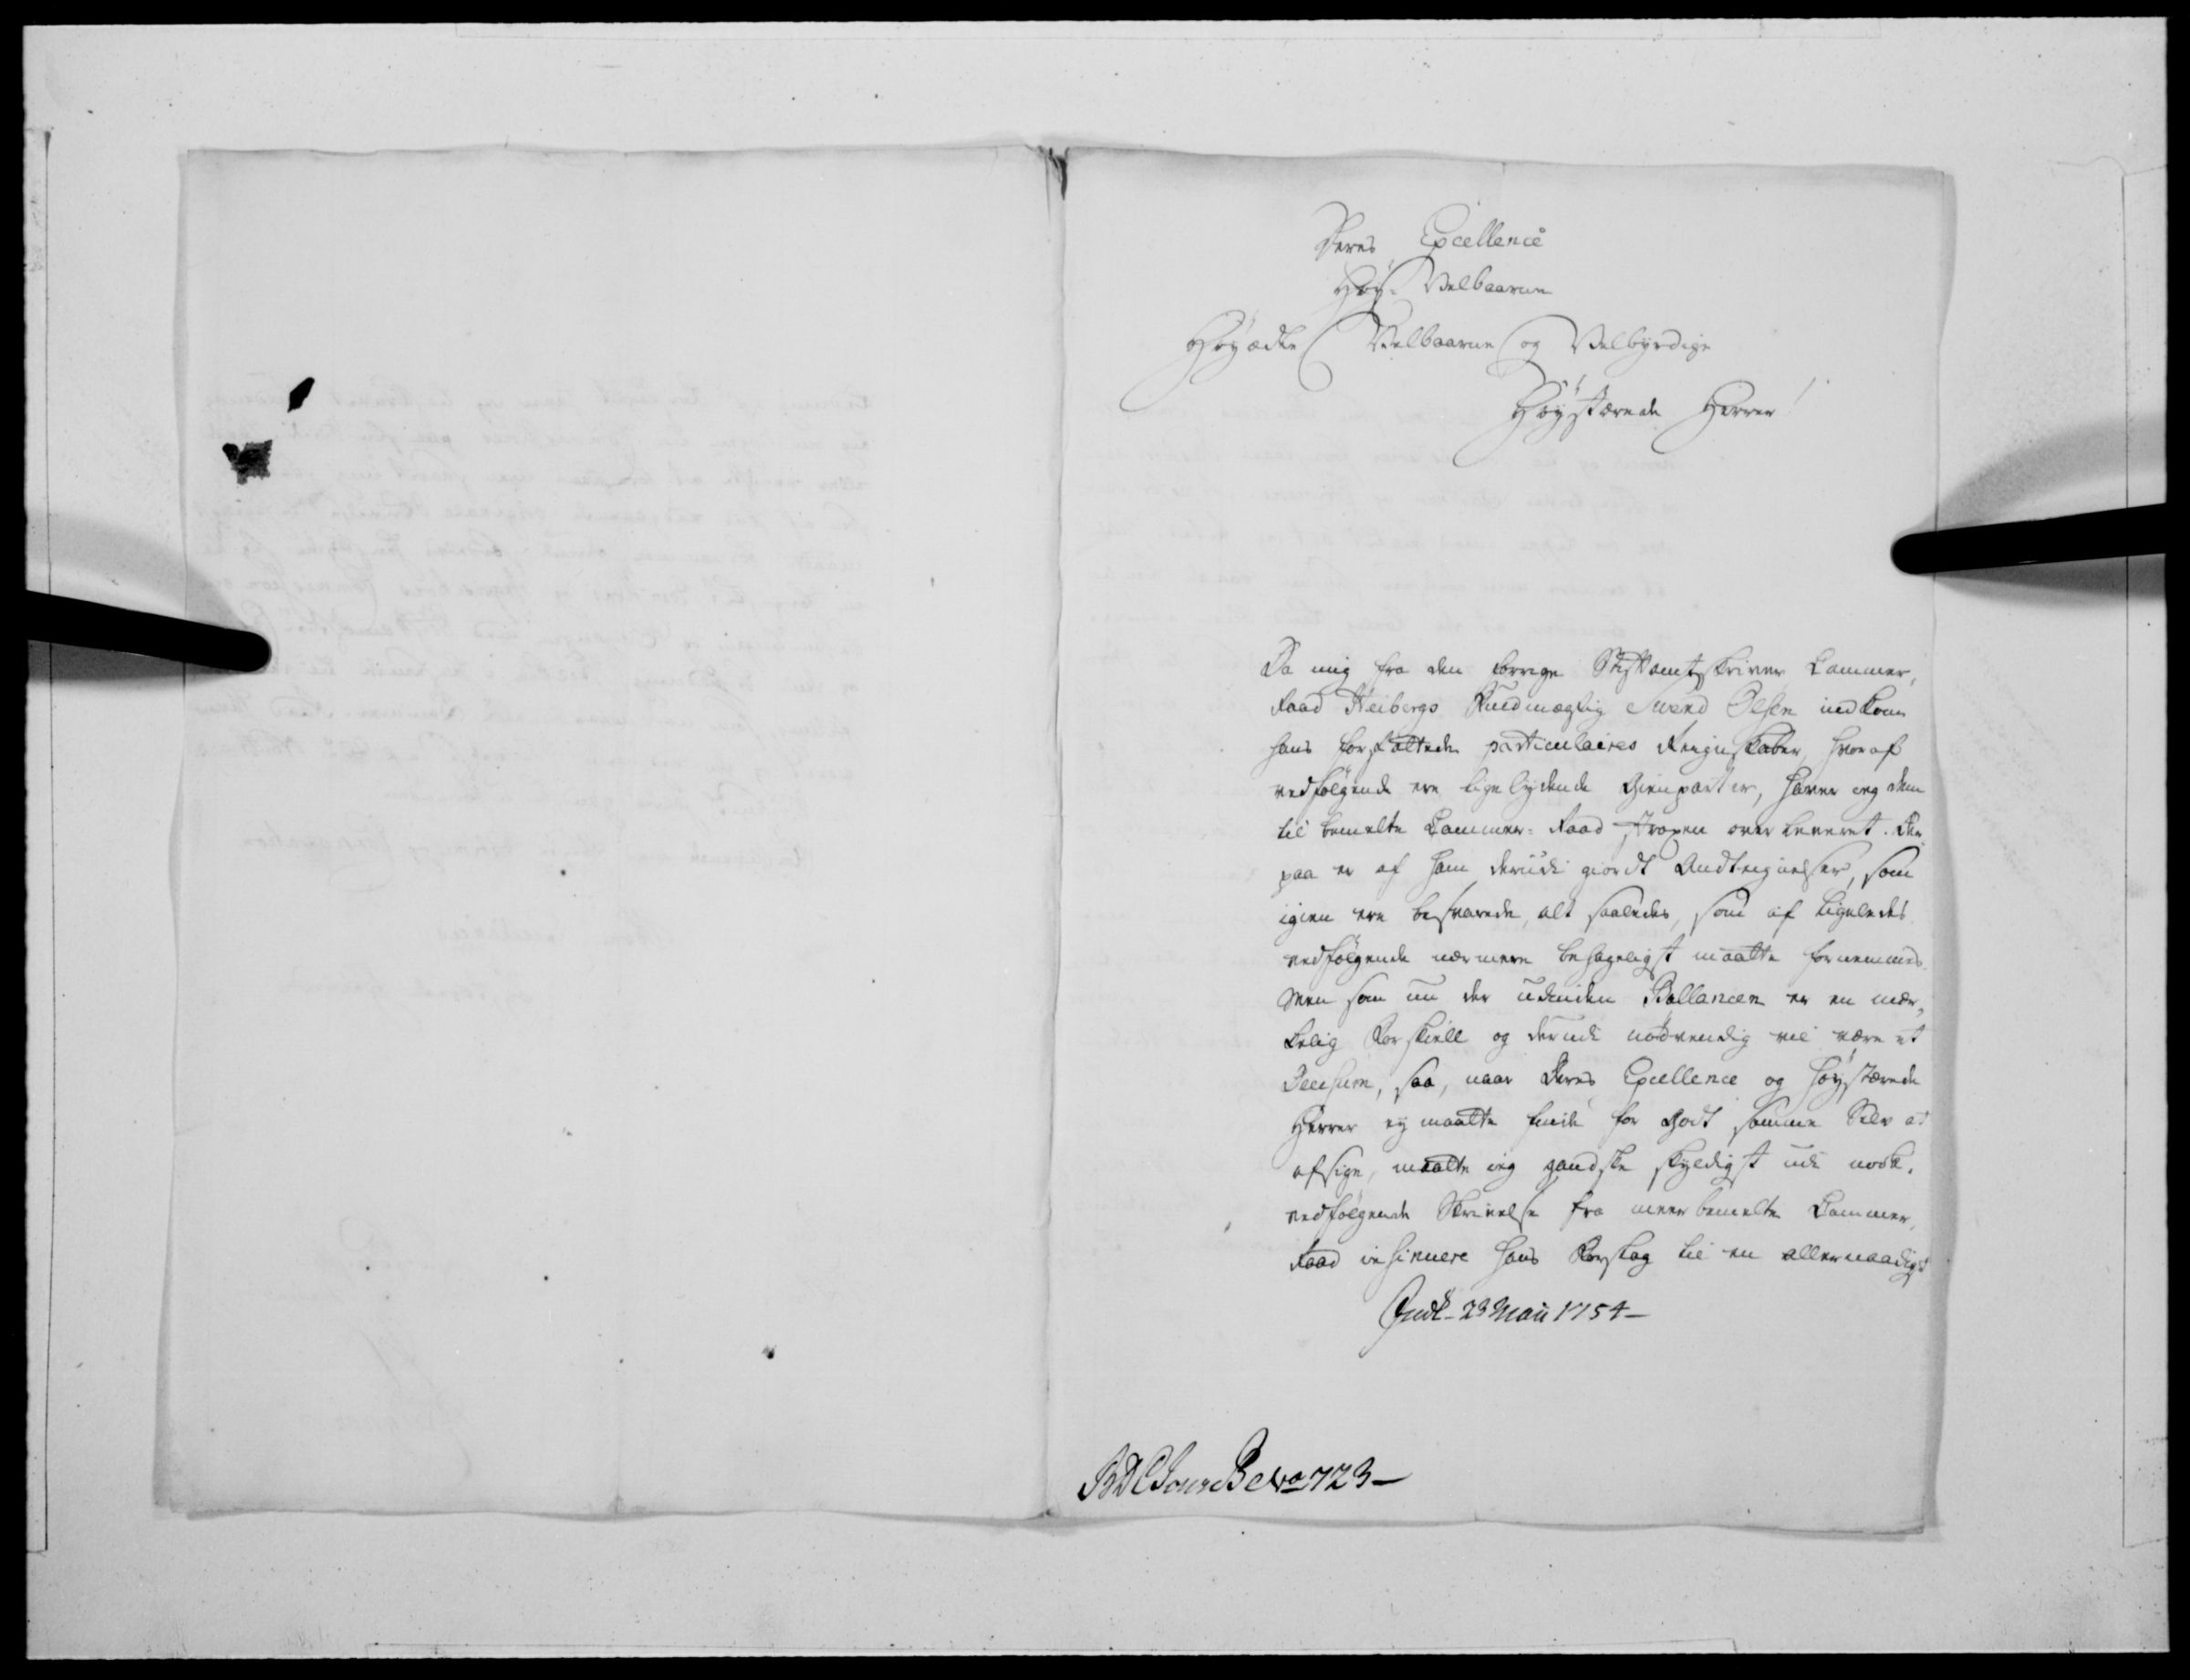 Deres Excellence
Høy-Velbaarne
Høyædle Velbaarne og Velbyrdige
Høystærede Herrer!
Da mig fra den forrige Stiftamtskriver Cammer,
Raad Heibergs Fuldmægtig Svend Olsen indkom
hans forfattede particulaires Regnskaber, hvoraf
vedfølgende ere ligelydende Gienparter, haver jeg dem
til bemelte Cammer-Raad overleveret. Der
paa er af ham derudi giordt Andtegnelser, som
igien ere besvarede, alt saaledes, som af ligeledes
vedfølgende nærmere behageligst maatte fornemmes.
Men som nu der udinden Ballancen er en mær,
kelig Forskiell og derudi nødvendig vil være et
Decisum, saa, naar Deres Excellence og høystærede
Herrer ey maatte finde for Godt samme Selv at
afsige, maatte jeg gandske skyldigst udi
vedfølgende Skrivelse fra meerbemelte Cammer,
Raad insinuere hans Forslag til en allernaadigst
Indk- 23 Maii 1754-
Be No 723-